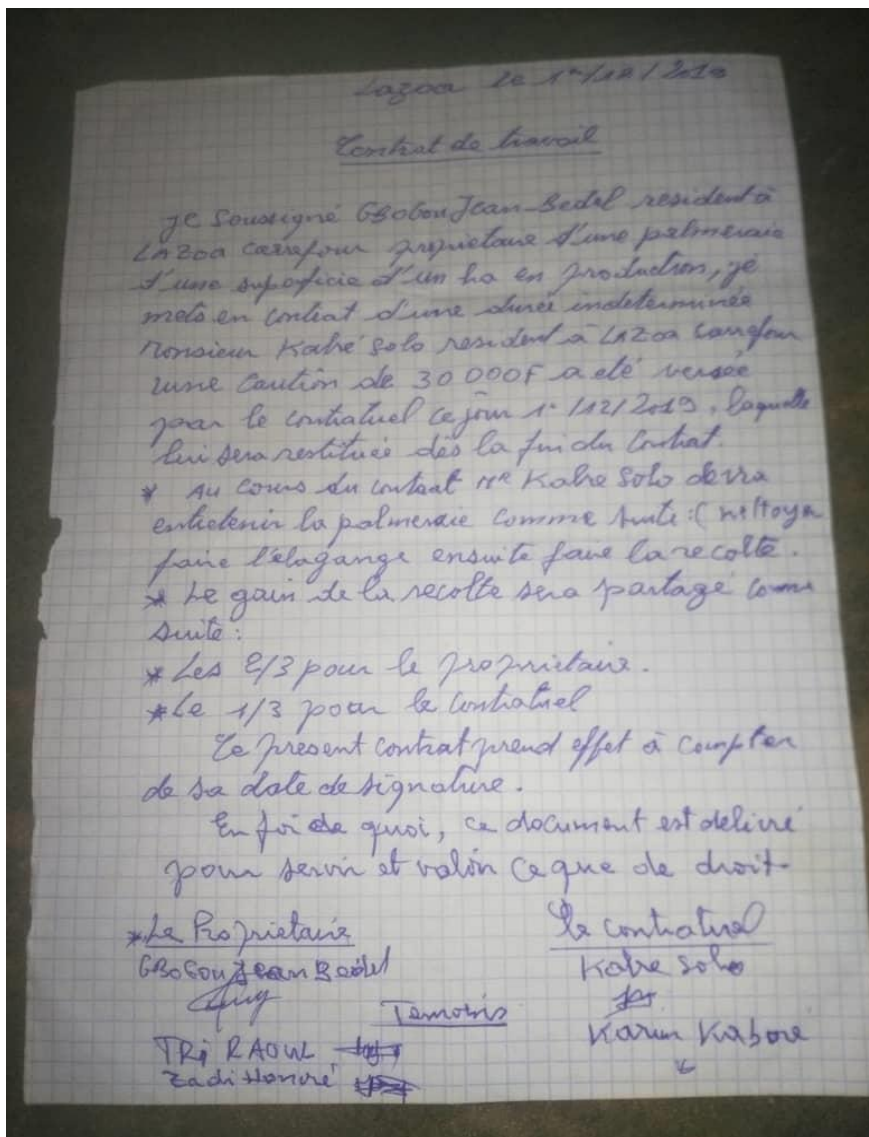 Lazoa le 1er/12/2019
Contrat de travail
je Soussigné GBOGOU Jean-Bedel resident à
LAZoa carrefour proprietaire d'une palmeraie
d'une superficie d'un ha en production, je
mets en contrat d'une durée indeterminée
Monsieur Kabré Solo resident à LAZoa Carrefour
une Caution de 30 000F a été versée
par le contratuel ce jour 1er/12/2019, laquelle
lui sera restituée dès la fin du Contrat.
* Au cours du contrat Mr Kabre Solo devra
entretenir la palmeraie comme suite : ( nettoyer
faire l'elagange ensuite faire la recolte.
* Le gain de la recolte sera partagé comme
suite :
* Les 2/3 pour le proprietaire.
* Le 1/3 pour le contratuel
Le present contrat prend effet à compter
de sa date de signature.
En foi de quoi, ce document est delivré
pour servir et valoir ce que de droit-
* Le Proprietaire
GBOGOU Jean Bedel
Le contratuel
Kabre Solo
Temoins
TRi RAOUL
Zadi Honoré
Karim Kabore